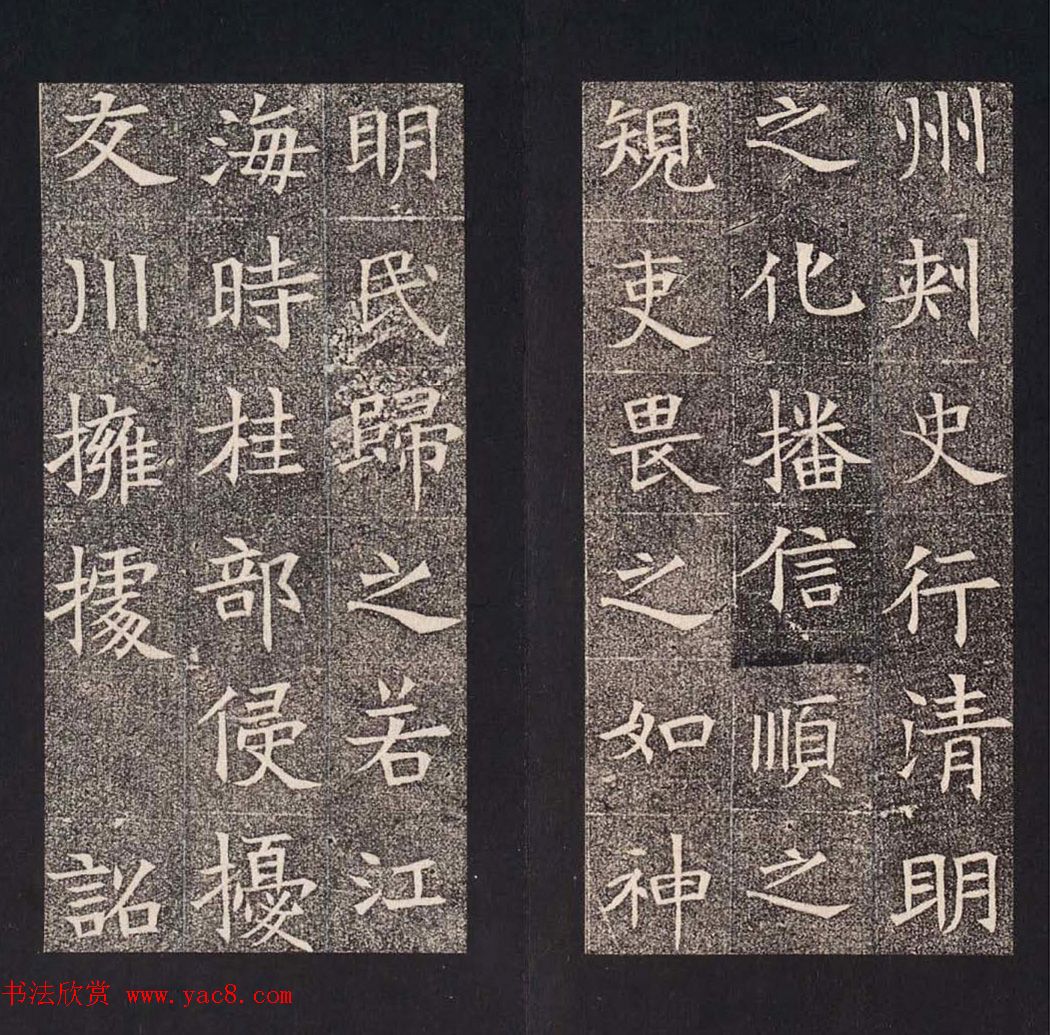 州刺史行清明
之化播信順之
規吏畏之如神
明民歸之若江
海時桂部侵擾
交川擁據
詔
书法欣赏 www.yac8.com